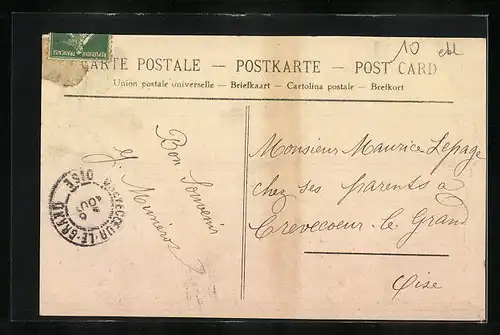 10
RÉPUBLIQUE FRANÇAISE
CARTE POSTALE — POSTKARTE — POST CARD
Union postale universelle — Briefkaart — Cartolina postale — Brefkort
Bon Souvenir
Monsieur Maurice Lepage
chez ses parents à
Crevecoeur-le-Grand
Oise
CRÈVECŒUR-LE-GRAND
OISE